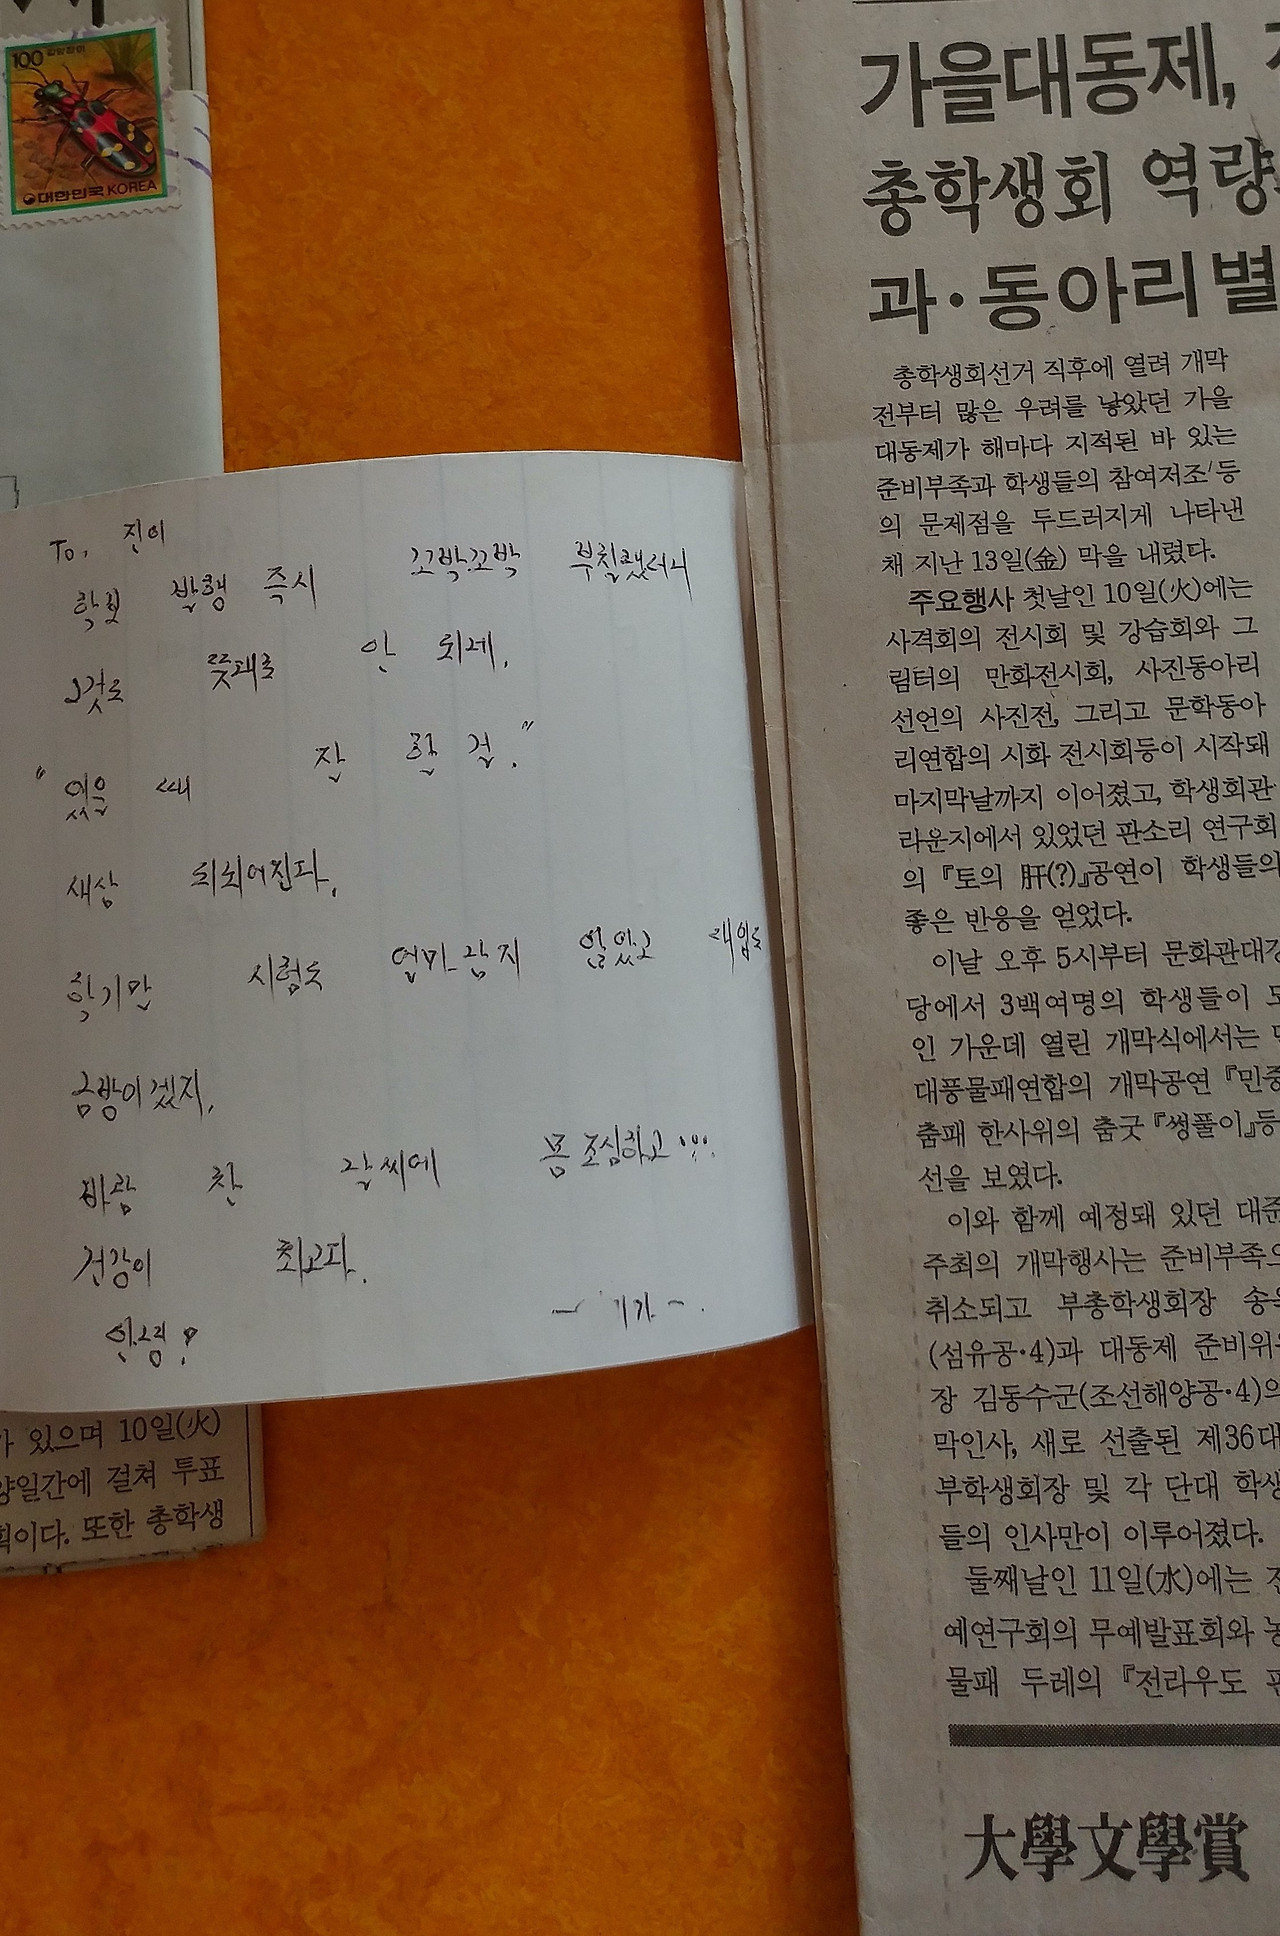 100
대한민국 KOREA
To. 진이
학보 발행 즉시 꼬박꼬박 부칠랬더니
그것도 뜻대로 안 되네.
"있을 때 잘 할 걸."
새삼 되뇌어진다.
학기만 시험도 얼마 남지 않았고
금방이겠지.
바람 찬 날씨에 몸 조심하고 ...
건강이 최고다.
안녕!
가 있으며 10일(火)
양일간에 걸쳐 투표
획이다. 또한 총학생
가을대동제,
총학생회 역량
과·동아리별
총학생회선거 직후에 열려 개막
전부터 많은 우려를 낳았던 가을
대동제가 해마다 지적된 바 있는
준비부족과 학생들의 참여저조 등
의 문제점을 두드러지게 나타낸
채 지난 13일(金) 막을 내렸다.
주요행사 첫날인 10일(火)에는
사격회의 전시회 및 강습회와 그
림터의 만화전시회, 사진동아리
선언의 사진전, 그리고 문학동아
리연합의 시화 전시회등이 시작돼
마지막날까지 이어졌고, 학생회관
라운지에서 있었던 판소리 연구회
의 『토의 肝(?)』공연이 학생들의
좋은 반응을 얻었다.
이날 오후 5시부터 문화관대강
당에서 3백여명의 학생들이 모
인 가운데 열린 개막식에서는
대풍물패연합의 개막공연 『민중
춤패 한사위의 춤굿 『썽풀이』등
선을 보였다.
이와 함께 예정돼 있던 대준
주최의 개막행사는 준비부족으
취소되고 부총학생회장 송
(섬유공·4)과 대동제 준비위
장 김동수군(조선해양공·4)의
막인사, 새로 선출된 제36대
부학생회장 및 각 단대 학생
들의 인사만이 이루어졌다.
둘째날인 11일(水)에는
예연구회의 무예발표회와
물패 두레의 『전라우도
大學文學賞